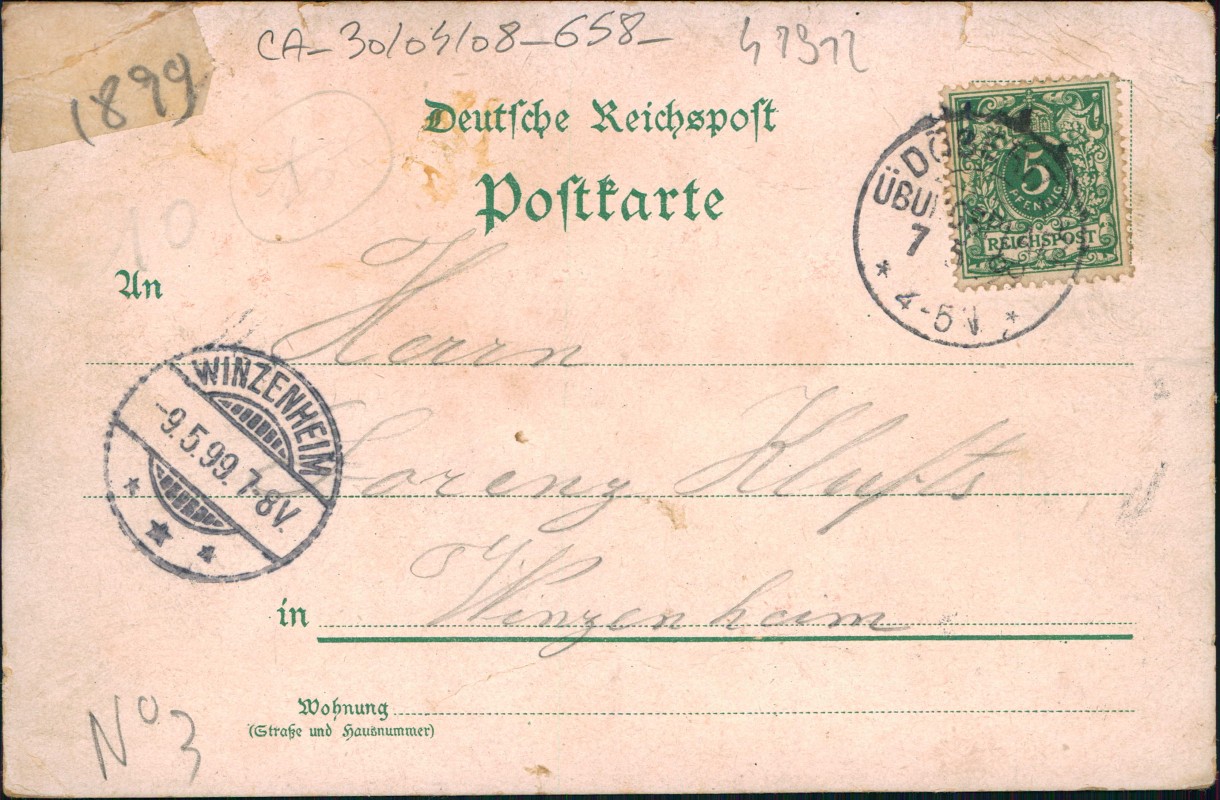 CA-30/04/08-658-
(1899)
Deutsche Reichspost
Postkarte
5
PFENNIG
REICHSPOST
7
4-5N
An
Herrn
WINZENHEIM
-9.5.99. 7-8V.
Lorenz
in
Winzenheim
Wohnung
(Straße und Hausnummer)
No 3
10